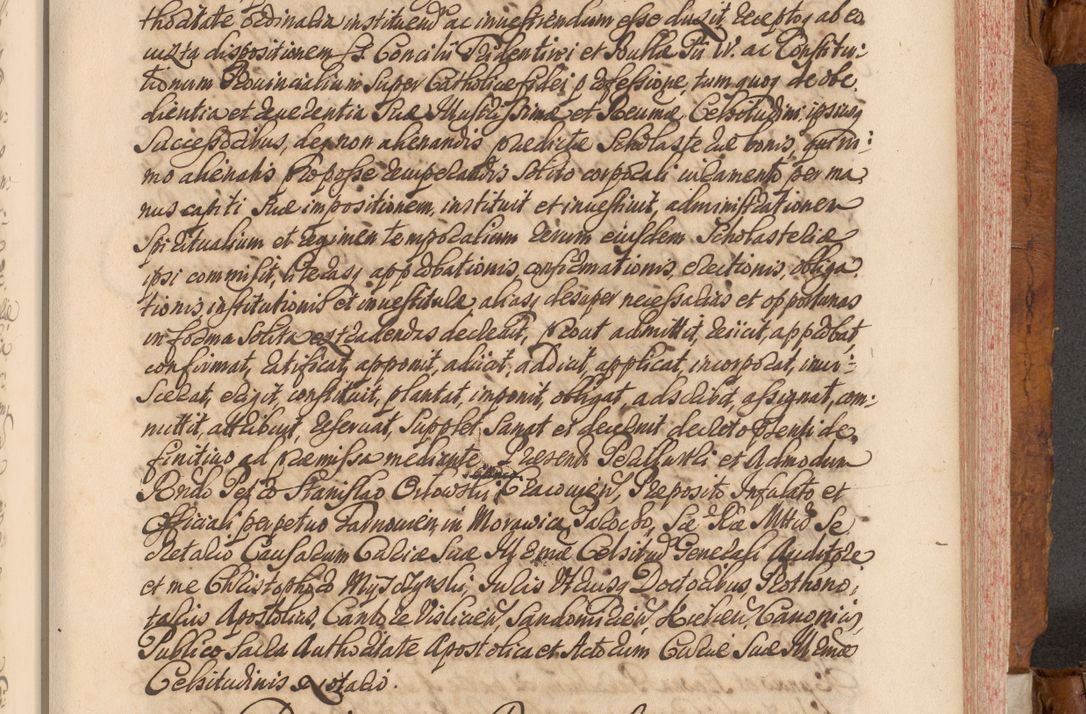 thoritate ordinaria instituend ac investiendum esse duxit receptoq ab eo
iuxta dispositionem S. Concilii Tridentini et Bulla Pii IV. ac Constitu:
tionum Provincialium super Catholicae fidei professione, tumquoq de obe
dientia et reverentia Suae Illustrissimae et Reverendissimae Celsitudini ipsiusq
Successoribus, deq non alienandis praedictae Scholasteriae bonis, quini:
mo alienatis pro posse recuperandis solito corporali iuramento per ma
nus capiti suae impositionem, instituit et investivit, administrationem
Spiritualium et regimen temporalium rerum eiusdem Scholasteriae
ipsi commisit, literasq approbationis, confirmationis, electionis, obliga
tionis institutionis et investiturae aliasq desuper necessarias et oppostunas
in forma solita extradendas decrevit, prout admittit, reiicit, approbat
confirmat, ratificat, apponit, adiicit, addicit, applicat, incorporat, invi:
scerat, eligit, constituit, plantat, imponit, obligat, adscribit, assignat, com:
mittit, attribuit, reservat, supplet, sanat et decernit decreto psenti de
finitivo ad praemissa mediante. Praesente Perillustri et Admodum
Rndo Petro Stanislao Orlowski, Cracovien, Praeposito Infulato et
Officiali perpetuo Tarnovien, in Morawica Parocho, Sae Rae Mttis Se
cretario Causarum Curiae Suae Ill Rmae Celsitud Generali Auditore
et me Christophoro Myszczynski, Iuris Utriusq Doctoribus Prothono:
tariis Apostolicis, Cantore Vislicien, Sandomirien, Kielcen, Canonicis,
Publico Sacra Authoritate Apostolica et Actorum Curiae Suae Ill Rmae
Celsitudinis Notario.